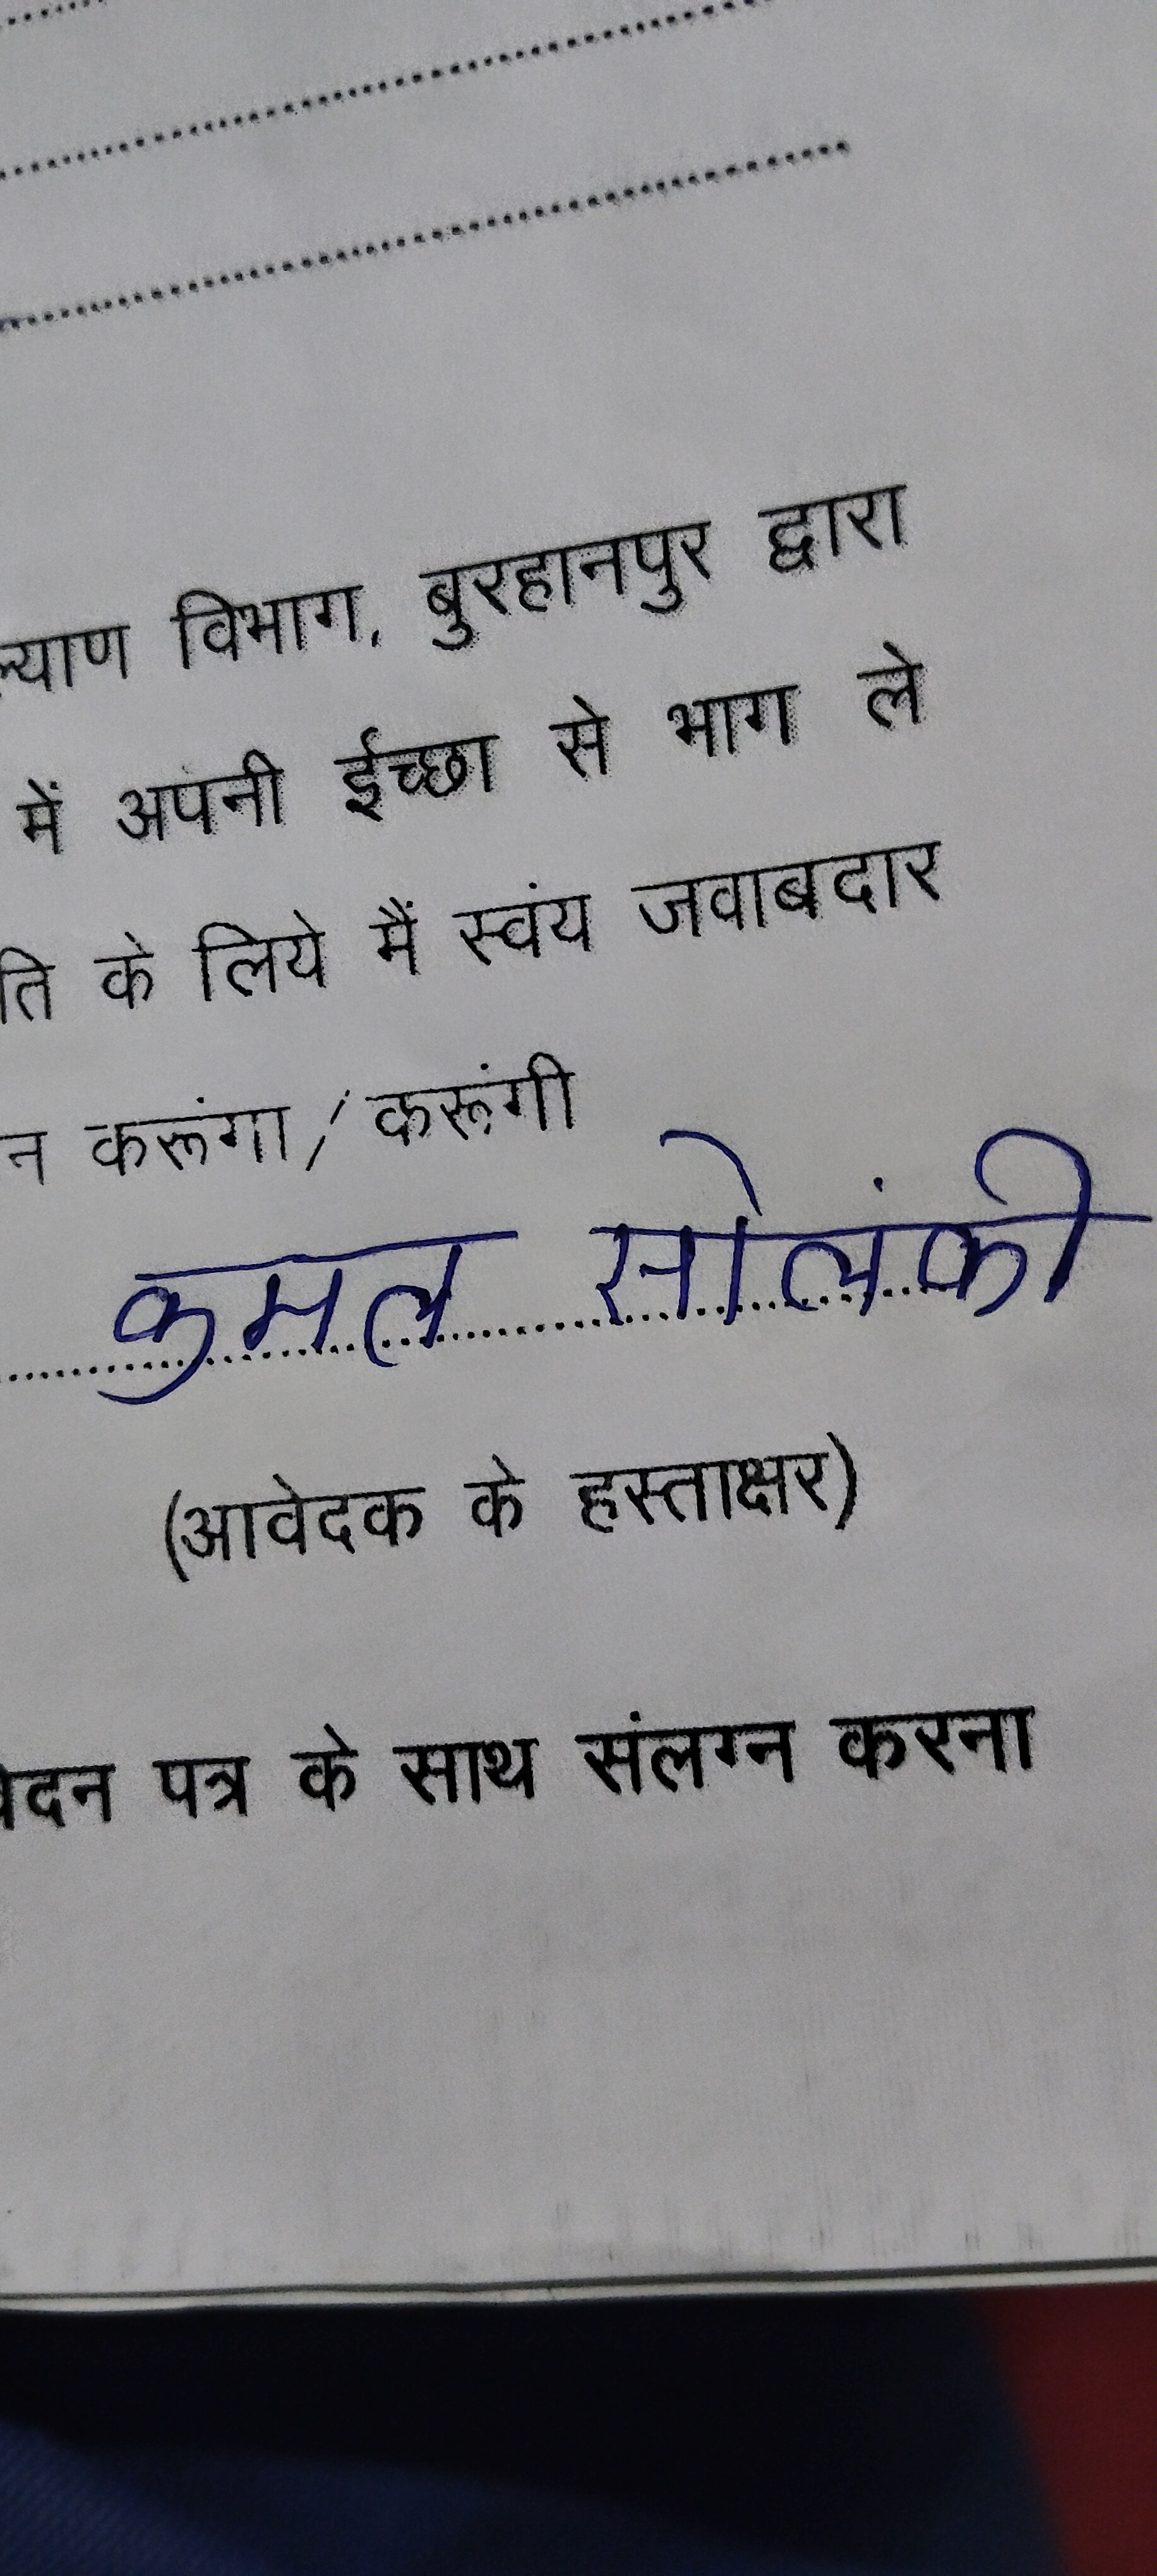 विभाग, बुरहानपुर द्वारा
में अपनी ईच्छा से भाग ले
के लिये मैं स्वंय जवाबदार
न करूंगा / करूंगी
कमल सोलंकी
(आवेदक के हस्ताक्षर)
पत्र के साथ संलग्न करना